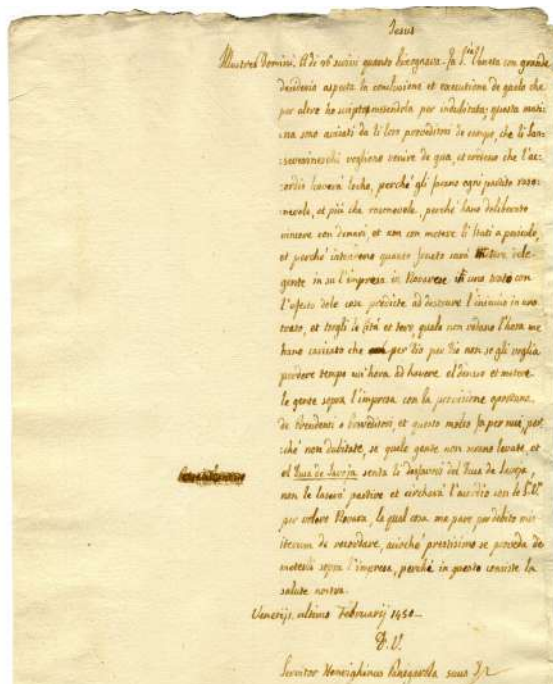 Jesus
Illustres Domini. A di 26 scrissi quanto bisognava. La S.ria Veneta con grande
desiderio aspecta la conclusione et executione de quelo che
per altre ho scripto metendola per indubitata; questa mati-
na sono avisati da li loro proveditori de campo, che li San-
severineschi vogliono venire de qua, et credeno che l'ac-
cordio haverà locho, perchè gli farano ogni partito raxo-
nevole, et più che raxonevole, perchè hano deliberato
vincere con denari, et non con metere li stati a periculo,
et perchè intendeno quanto fructo sarà metere dele
gente in su l'impresa in Novarese in uno trato con
l'efecto dele cose predicte ad destrure l'inimico in uno
trato, et torgli le cità et tere, quale non vedano l'hora me
hano caricato che per Dio per Dio non se gli voglia
perdere tempo un'hora ad havere el denaro et metere
le gente sopra l'impresa con la provisione
de Presidenti o Proveditori, et questo molto fa per nui, per-
chè non dubitate, se quele gente non sarano levate, et
el Duca de Savoja senta li del Duca de Savoja,
non le lasarà partire et circharà l'acordio con le S.V.
per volere Novara, la qual cosa me pare per debito mio
iterum de recordare, aciochè prestissimo se proveda de
meterli sopra l'impresa, perchè in questo consiste la
salute nostra.
Venetijs, ultimo Februarij 1450.
D. V.
Servitor Henrighinus Panigarola